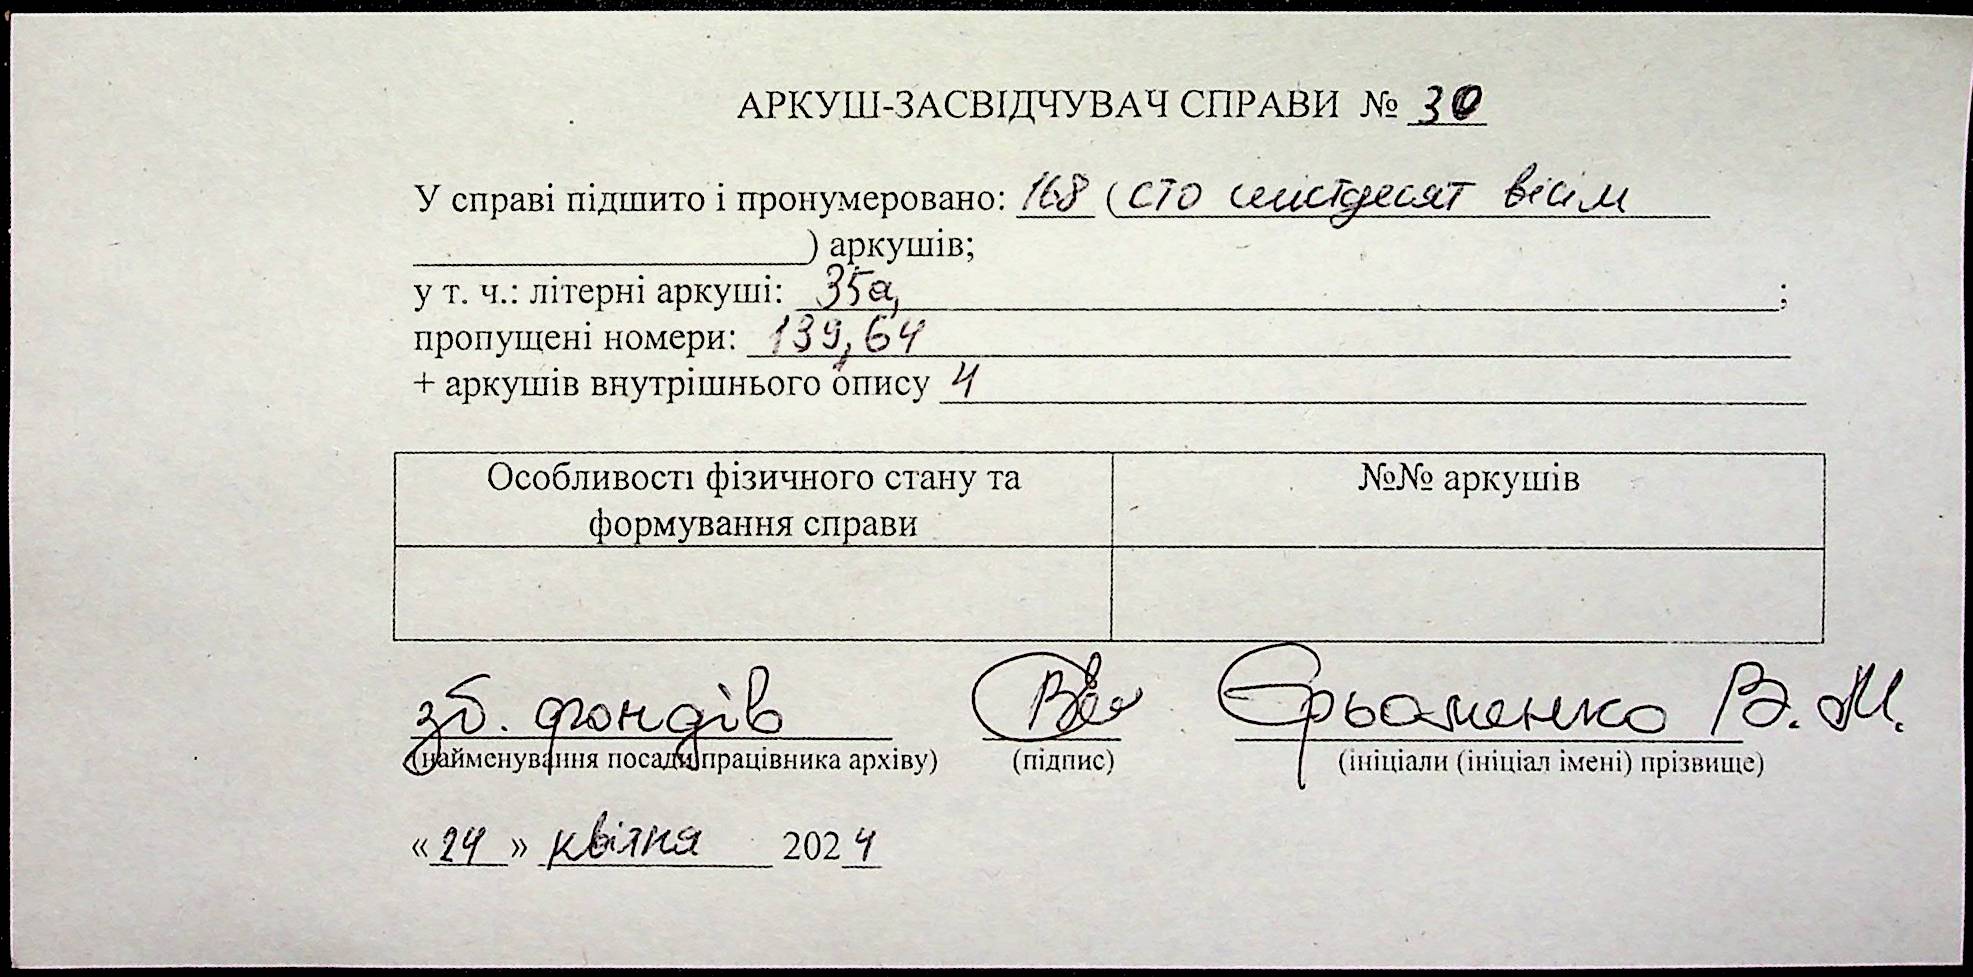 АРКУШ-ЗАСВІДЧУВАЧ СПРАВИ № 30
У справі підшито і пронумеровано: 168 (сто шістдесят вісім
) аркушів;
у т. ч.: літерні аркуші: 35а, ;
пропущені номери: 139, 64
+ аркушів внутрішнього опису 4
Особливості фізичного стану та формування справи
№№ аркушів
зб. фондів Єрьоменко В. М.
(найменування посади працівника архіву) (підпис) (ініціали (ініціал імені) прізвище)
«24» квітня 2024